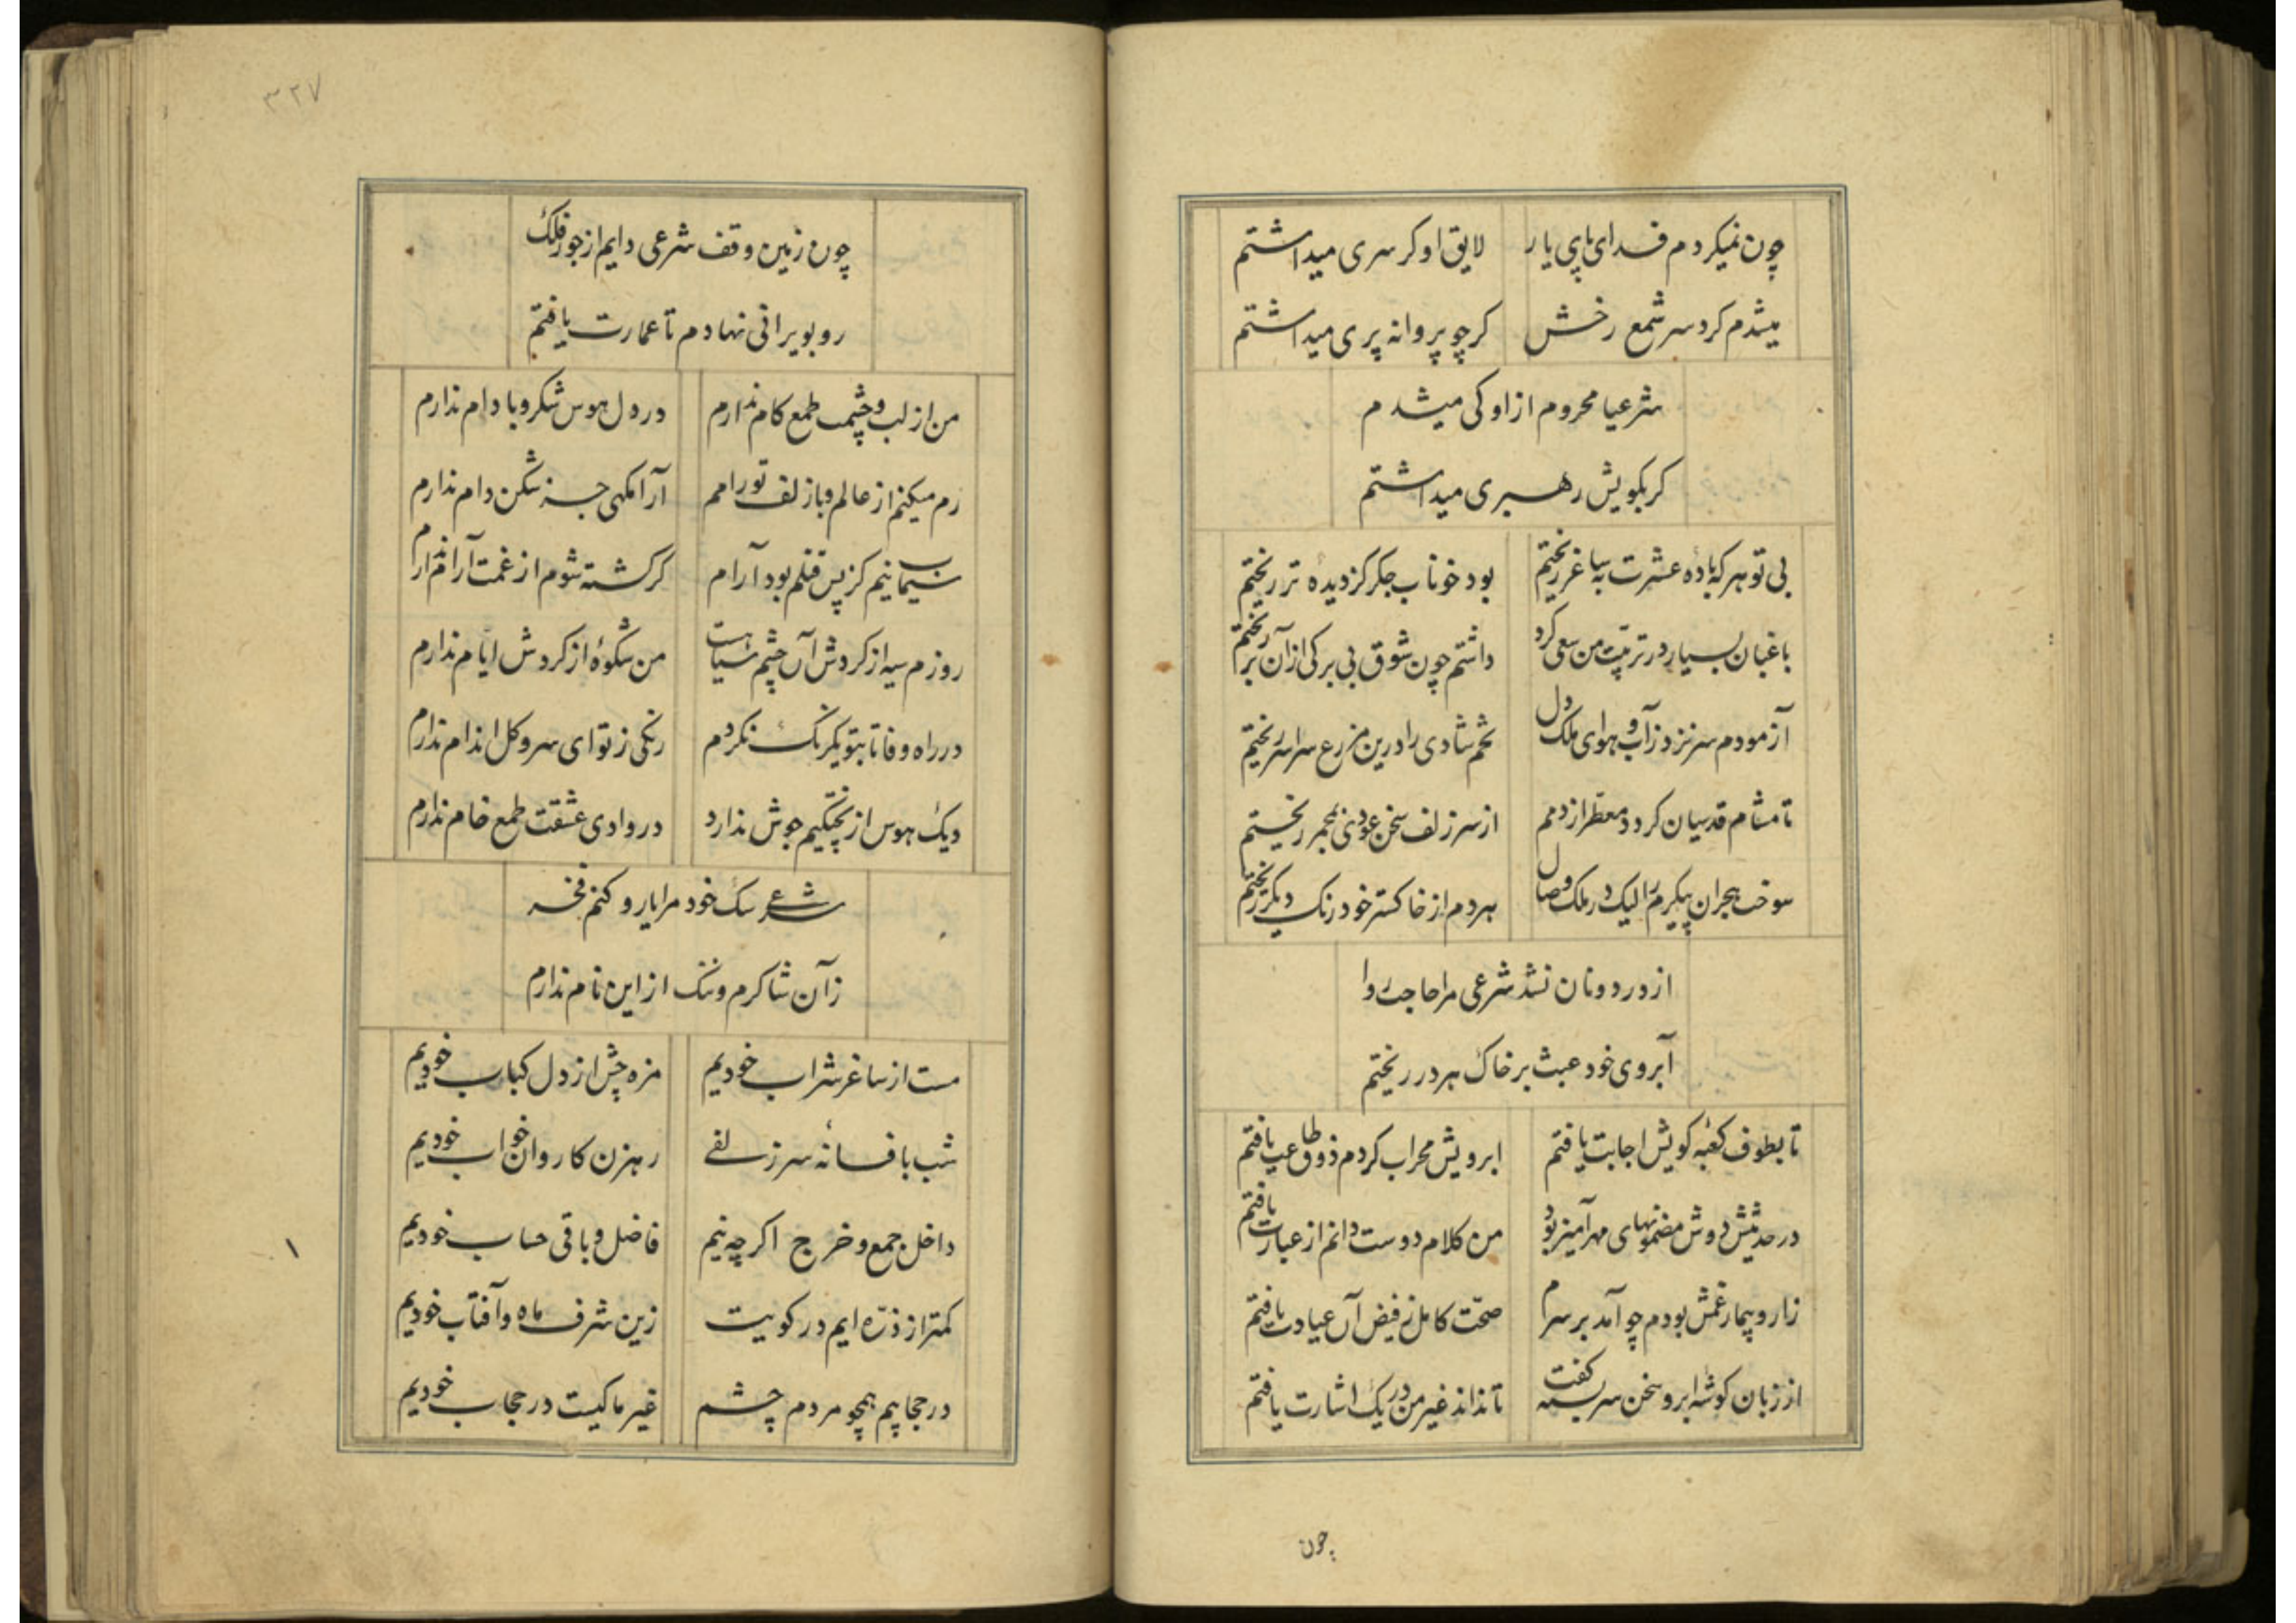 چون نمیکردم فدای پای یار لایق او کر سری میداشتم
میشدم کرد سر شمع رخش کر چو پروانه پری میداشتم
شرعیا محروم از او کی میشدم
کر بکویش رهبری میداشتم
بی تو هر که باده عشرت به ساغر ریختم بود خوناب جکر کز دیده تر ریختم
باغبان بسیار در تربیت من سعی کرد داشتم چون شوق بی برکی ازان بر ریختم
آزمودم سر نزد ز آب و هوای ملک دل تخم شادی را درین مزرع سراسر ریختم
تا مشام قدسیان کردد معطر از دمم از سر زلف سخن عودی بمجمر ریختم
سوخت هجران پیکرم را لیک در ملک وصال هر دم از خاکستر خود رنک دیکر ریختم
از در دونان نشد شرعی مرا حاجت روا
آبروی خود عبث بر خاک هر در ریختم
تا بطوف کعبه کویش اجابت یافتم ابرویش محراب کردم ذوق طاعت یافتم
در حدیثش دوش مضمونهای مهرآمیز بود من کلام دوست دانم از عبارت یافتم
زار و بیمار غمش بودم چو آمد بر سرم صحت کامل ز فیض آن عیادت یافتم
از زبان کوشه ابرو سخن سربسته کفت تا نداند غیر من در یک اشارت یافتم
چون
۳۲۷
چون زمین وقف شرعی دایم از جور فلک
رو بویرانی نهادم تا عمارت یافتم
من از لب و چشمت طمع کام ندارم در دل هوس شکر و بادام ندارم
رم میکنم از عالم و با زلف تو رامم آرامکهی جز شکن دام ندارم
سیمابنیم کز پس قتلم بود آرام کر کشته شوم از غمت آرام ندارم
روزم سیه از کردش آن چشم سیاهست من شکوه از کردش ایام ندارم
در راه وفا تا بتو یکرنک نکردم رنکی ز تو ای سرو کل اندام ندارم
دیک هوس از پختکیم جوش ندارد در وادی عشقت طمع خام ندارم
شرعی سک خود مرا یار و کنم فخر
زآن شاکرم و ننک از این نام ندارم
مست از ساغر شراب خودیم مزه چش از دل کباب خودیم
شب با فسانه سر زلفی رهزن کاروان خواب خودیم
داخل جمع و خرج اکر چه نیم فاضل و باقی حساب خودیم
کمتر از ذره ایم در کویت زین شرف ماه و آفتاب خودیم
در حجابیم همچو مردم چشم غیر ما کیست در حجاب خودیم
۱